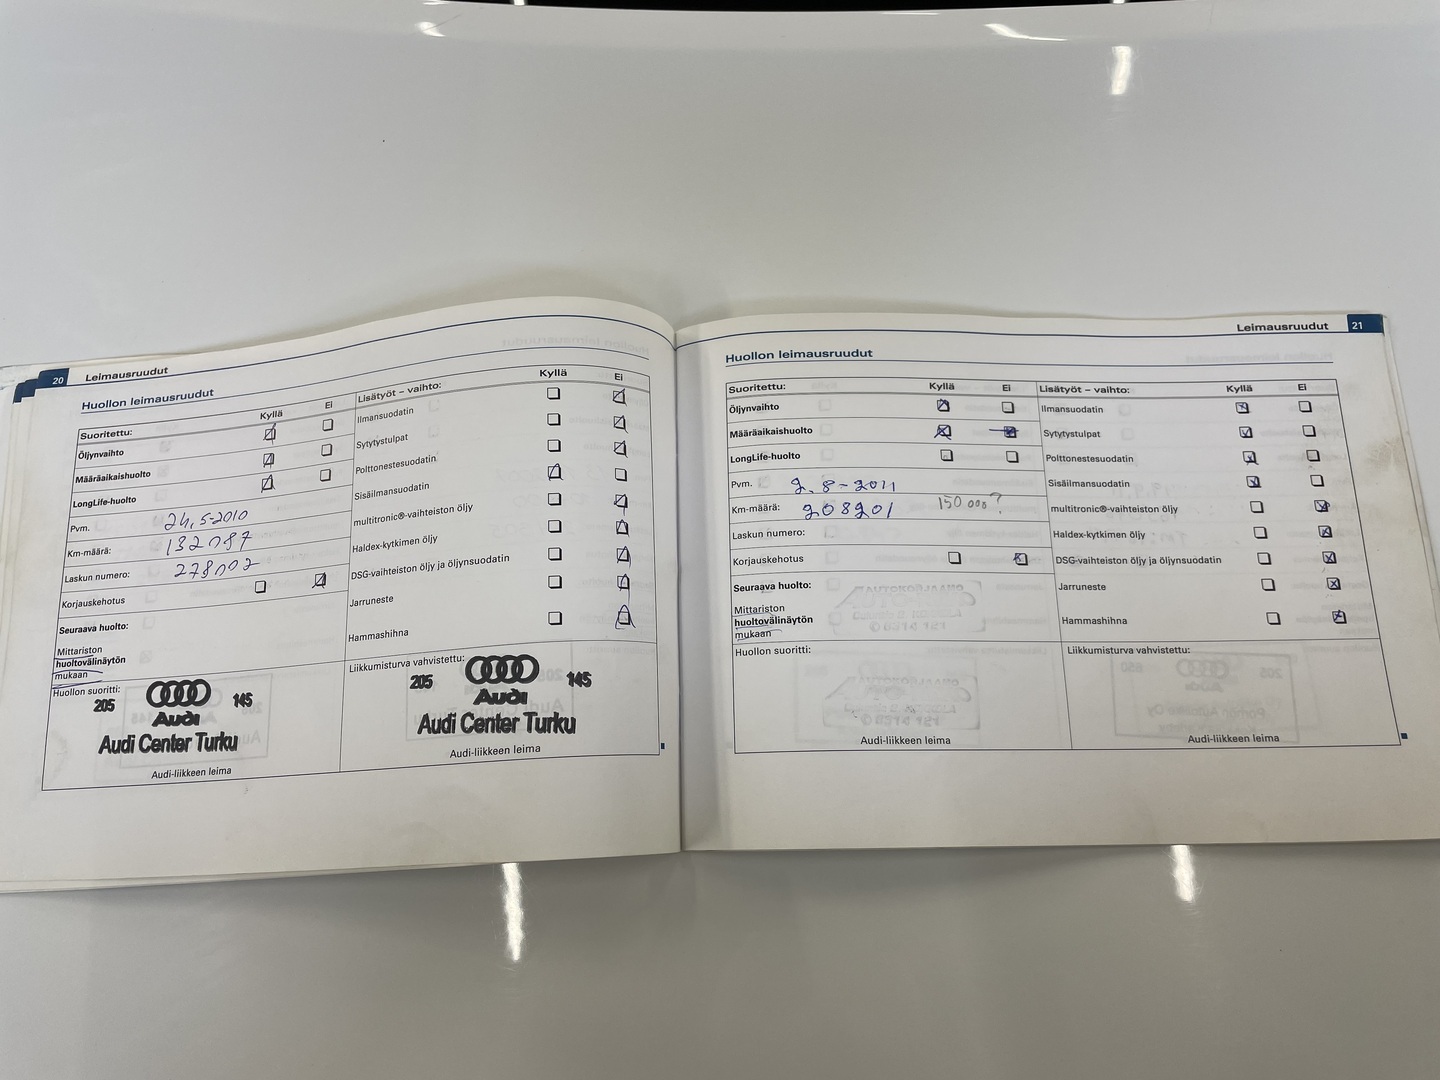 20 Leimausruudut
Huollon leimausruudut
Suoritettu: Kyllä Ei
Öljynvaihto
Määräaikaishuolto
LongLife-huolto
Pvm. 24.5-2010
Km-määrä: 132097
Laskun numero: 278002
Korjauskehotus
Seuraava huolto:
Mittariston
huoltovälinäytön
mukaan
Huollon suoritti:
205 145
Audi
Audi Center Turku
Audi-liikkeen leima
Lisätyöt – vaihto: Kyllä Ei
Ilmansuodatin
Sytytystulpat
Polttonestesuodatin
Sisäilmansuodatin
multitronic®-vaihteiston öljy
Haldex-kytkimen öljy
DSG-vaihteiston öljy ja öljynsuodatin
Jarruneste
Hammashihna
Liikkumisturva vahvistettu:
205 145
Audi
Audi Center Turku
Audi-liikkeen leima
Leimausruudut 21
Huollon leimausruudut
Suoritettu: Kyllä Ei
Öljynvaihto
Määräaikaishuolto
LongLife-huolto
Pvm. 2.8-2011
Km-määrä: 208201 150 000?
Laskun numero:
Korjauskehotus
Seuraava huolto:
Mittariston
huoltovälinäytön
mukaan
Huollon suoritti:
Audi-liikkeen leima
Lisätyöt – vaihto: Kyllä Ei
Ilmansuodatin
Sytytystulpat
Polttonestesuodatin
Sisäilmansuodatin
multitronic®-vaihteiston öljy
Haldex-kytkimen öljy
DSG-vaihteiston öljy ja öljynsuodatin
Jarruneste
Hammashihna
Liikkumisturva vahvistettu:
Audi-liikkeen leima